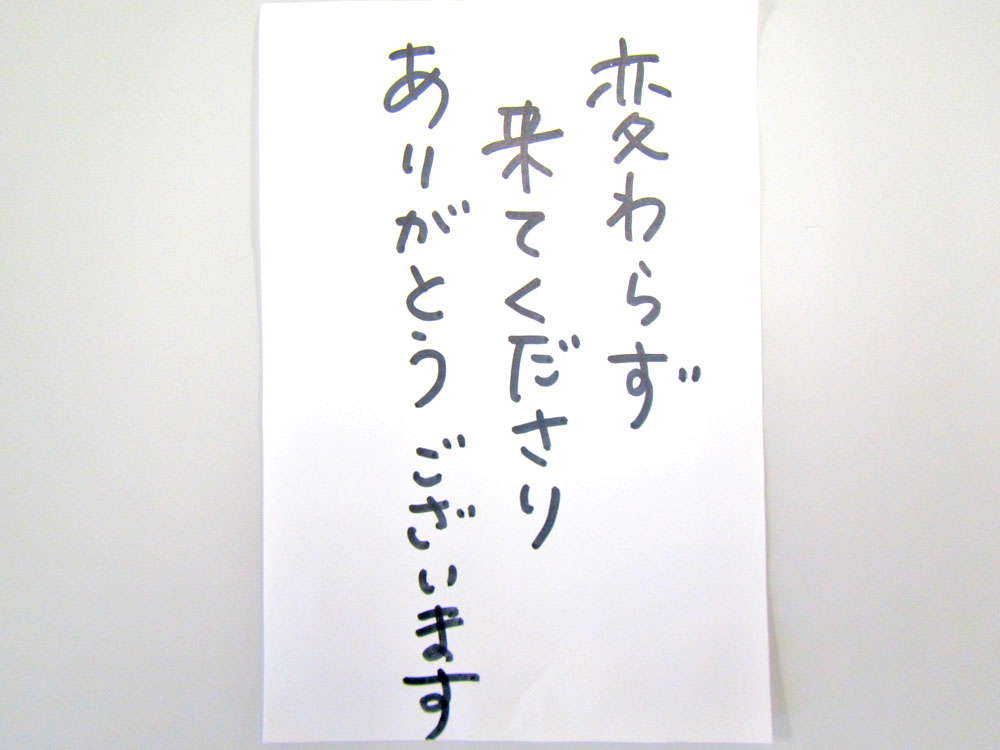 変わらず
来てくださり
ありがとうございます